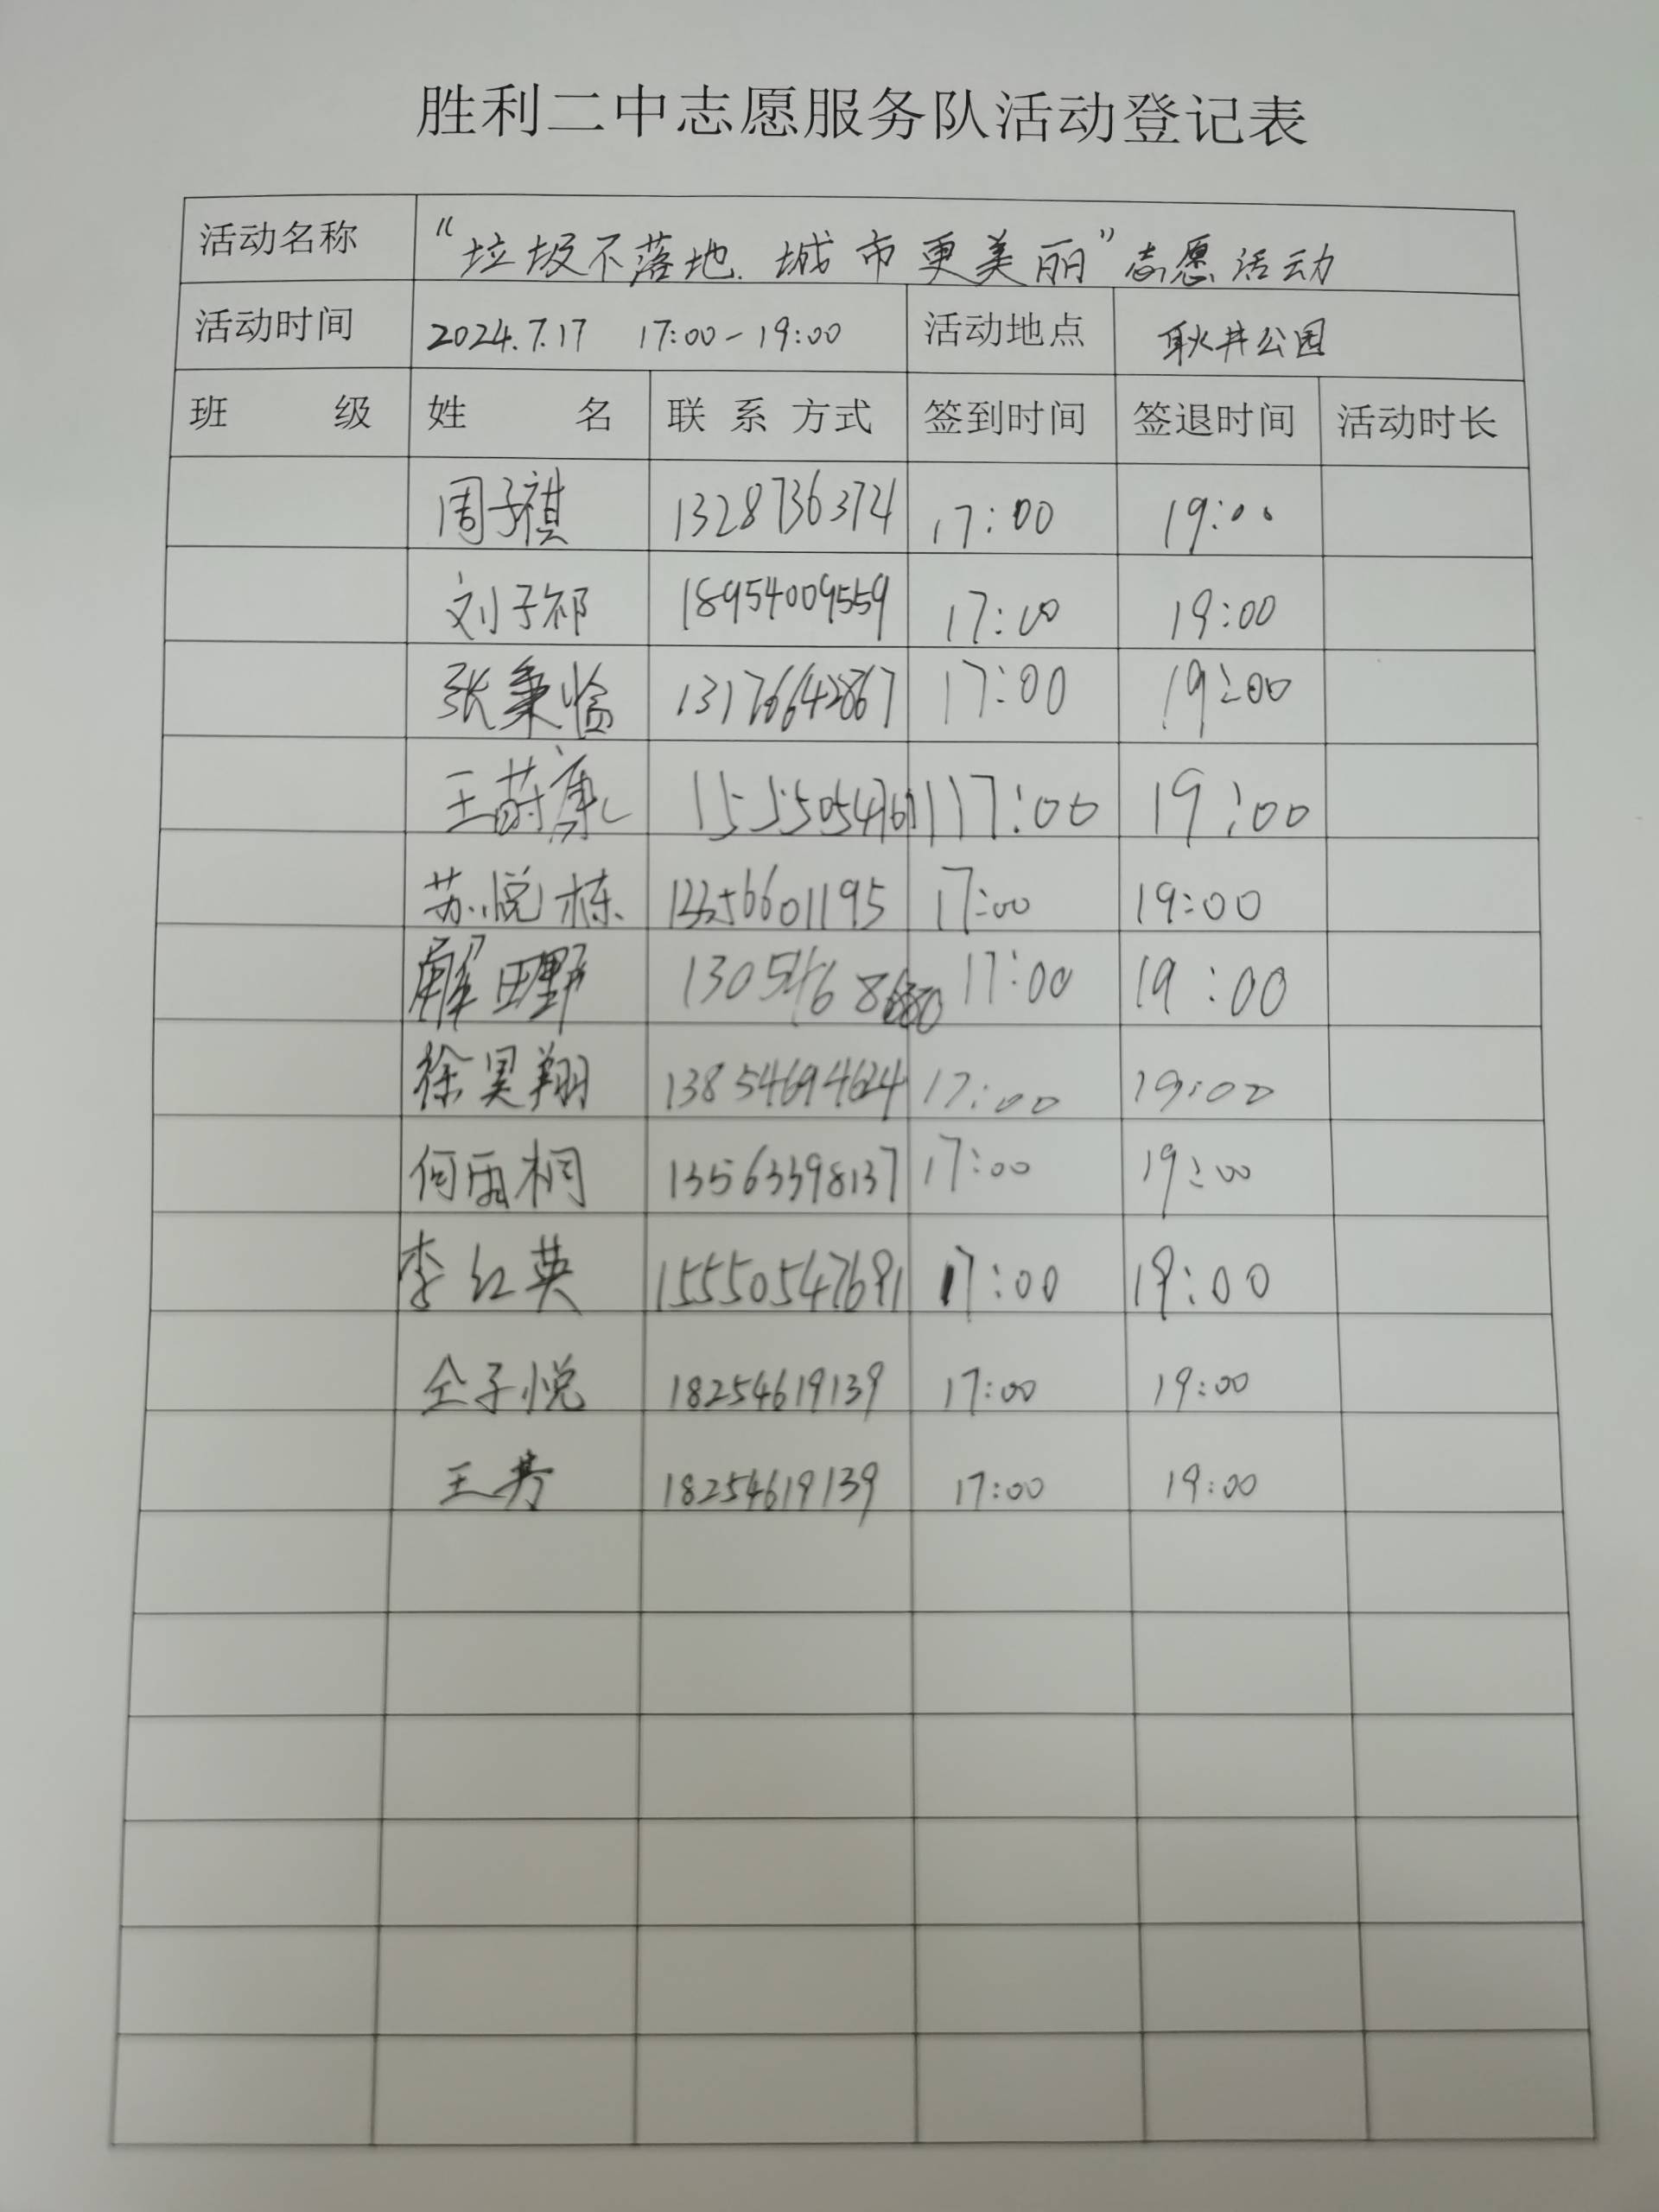 胜利二中志愿服务队活动登记表
活动名称 “垃圾不落地.城市更美丽”志愿活动
活动时间 2024.7.17 17:00-19:00 活动地点 耿井公园
班 级 姓 名 联 系 方式 签到时间 签退时间 活动时长
周子祺 1328736374 17:00 19:00
刘子祁 18954009559 17:00 19:00
张秉愉 13176642867 17:00 19:00
王蔚 17:00 19:00
苏悦栋 17:00 19:00
解田野 17:00 19:00
徐昊翔 13854694624 17:00 19:00
何雨桐 13563398137 17:00 19:00
李红英 15550547691 17:00 19:00
仝子悦 18254619139 17:00 19:00
王芳 18254619139 17:00 19:00